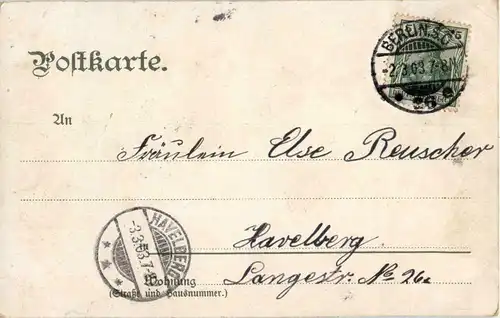 BERLIN.S.O.
-2.3.03.7-8N.
* 26 a
5
Postkarte.
An
Fräulein Else Reuscher
Havelberg
Langestr. No 26a
in
Wohnung
(Straße und Hausnummer.)
HAVELBERG
-3.3.03.7-8
* * *